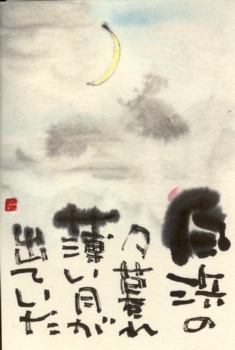 の
夕暮れ
薄い月が
出ていた